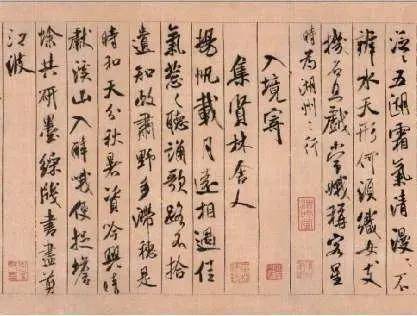 泛〻五湖霜氣清漫〻不
辨水天形何須織女支
機石且戲常娥稱客星
時為湖州之行
入境寄
集賢林舍人
揚帆載月遠相過佳
氣葱〻聽誦歌路不拾
遺知政肅野多滯穗是
時和天分秋暑資吟興晴
獻溪山入醉哦便捉蟾
蜍共研墨綵牋書盡剪
江波